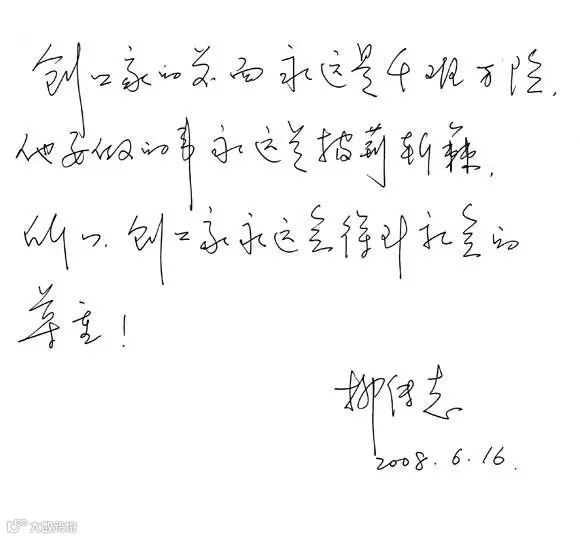 创业家的前面永远是千难万险,
他要做的事永远是披荆斩棘,
所以,创业家永远会得到社会的
尊重!
柳传志
2008.6.16.
大数跨境